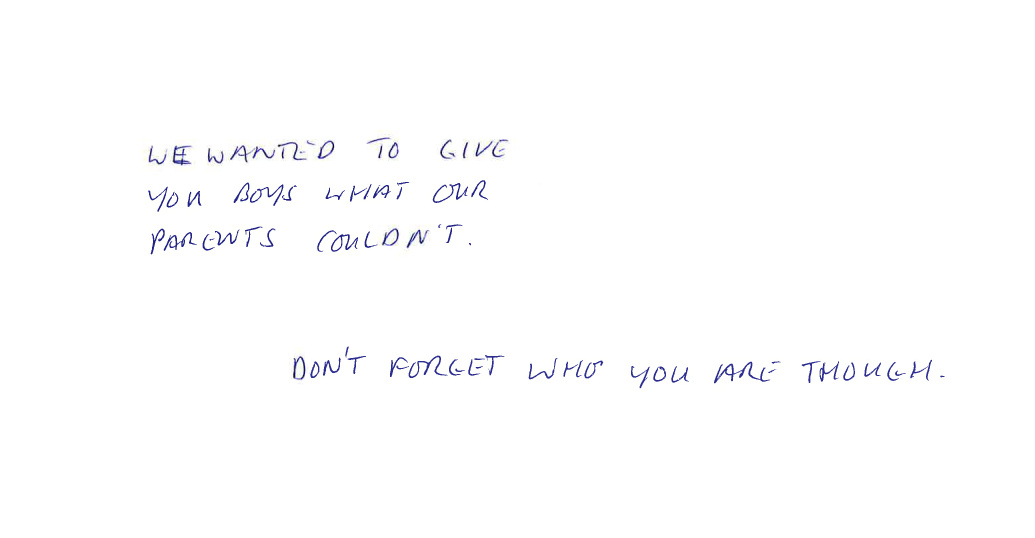 WE WANTED TO GIVE
YOU BOYS WHAT OUR
PARENTS COULDN'T.
DON'T FORGET WHO YOU ARE THOUGH.